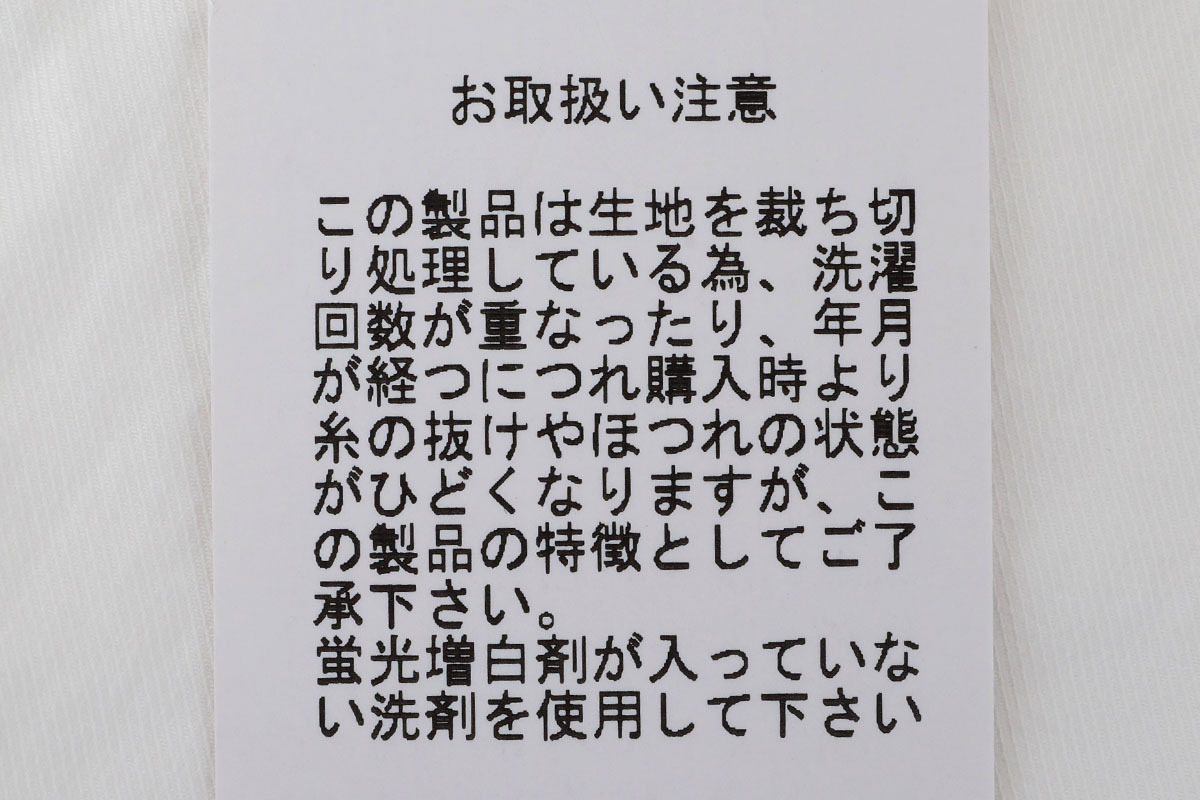 お取扱い注意
この製品は生地を裁ち切
り処理している為、洗濯
回数が重なったり、年月
が経つにつれ購入時より
糸の抜けやほつれの状態
がひどくなりますが、こ
の製品の特徴としてご了
承下さい。
蛍光増白剤が入っていな
い洗剤を使用して下さい